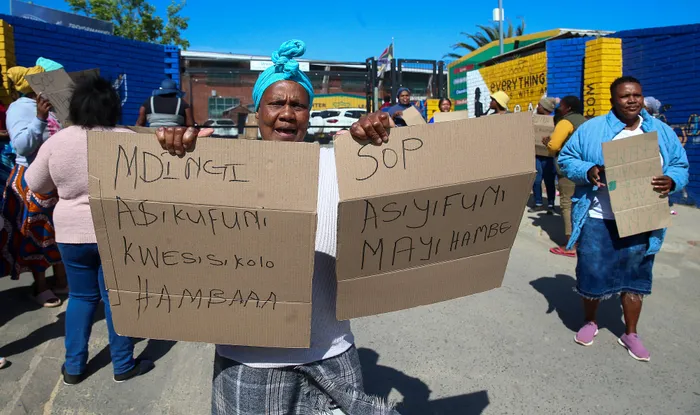 MDINGI
ASIKUFUNI
KWESISIKOLO
HAMBAAA
SOP
ASIYIFUNI
MAYIHAMBE
EVERYTHING